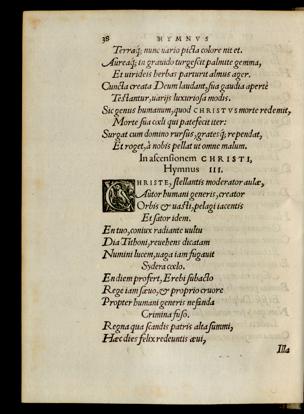 38 HYMNVS
Terraq; nunc uario picta colore nitet.
Aureaq; in grauido turgescit palmite gemma,
Et uirideis herbas parturit almus ager.
Cuncta creata Deum laudant, sua gaudia apertè
Testantur, uarijs luxuriosa modis.
Sic genus humanum, quod CHRISTVS morte redemit,
Morte sua cœli qui patefecit iter:
Surgat cum domino rursus, gratesq; rependat,
Et roget, à nobis pellat ut omne malum.
In ascensionem CHRISTI,
Hymnus III.
CHRISTE, stellantis moderator aulæ,
Autor humani generis, creator
Orbis & uasti, pelagi iacentis
Et sator idem.
En tuo, coniux radiante uultu
Dia Tithoni, reuehens dicatam
Numini lucem, uaga iam fugauit
Sydera cœlo.
En diem profert, Erebi subacto
Rege iam sæuo, & proprio cruore
Propter humani generis nefanda
Crimina fuso.
Regna qua scandis patris alta summi,
Hæc dies felix redeuntis æui,
Illa